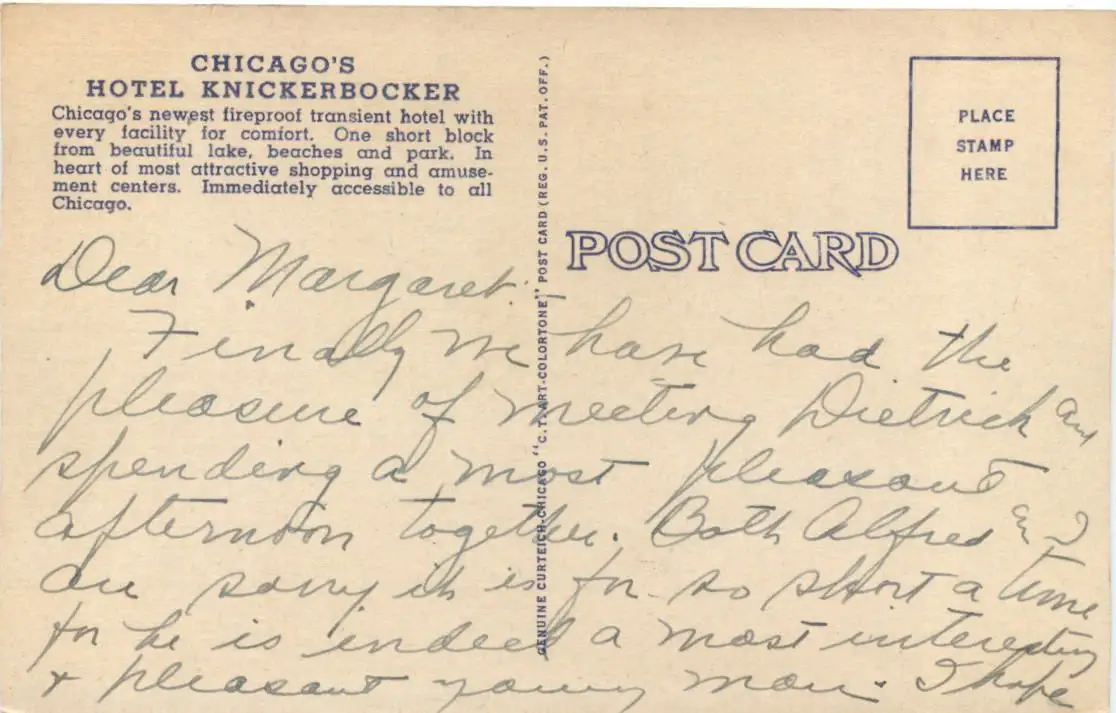 CHICAGO'S
HOTEL KNICKERBOCKER
Chicago's newest fireproof transient hotel with
every facility for comfort. One short block
from beautiful lake, beaches and park. In
heart of most attractive shopping and amuse-
ment centers. Immediately accessible to all
Chicago.
GENUINE CURTEICH-CHICAGO "C.T. ART-COLORTONE" POST CARD (REG. U.S. PAT. OFF.)
PLACE
STAMP
HERE
POST CARD
Dear Margaret.
Finally we have had the
pleasure of meeting Dietrich and
spending a most pleasant
afternoon together. Both Alfred & I
are sorry it is for so short a time
for he is indeed a most interesting
& pleasant young man. I hope